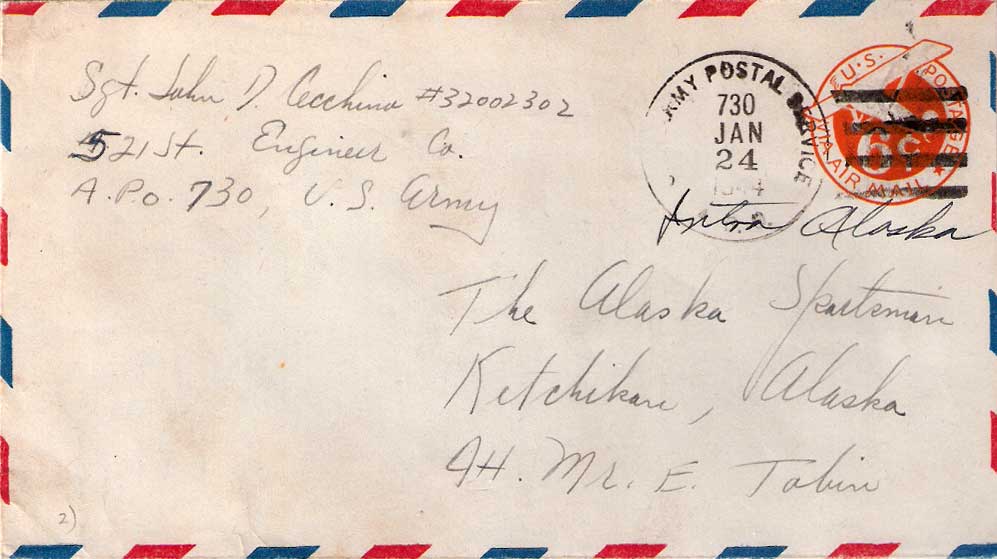 Sgt. John D. Cecchino #32002302
521 St. Engineer Co.
A.P.O. 730, U.S. Army
ARMY POSTAL SERVICE
730
JAN
24
1944
U.S. POSTAGE
6¢
VIA AIR MAIL
Intra Alaska
The Alaska Sportsman
Ketchikan, Alaska
Att. Mr. E. Tobin
2)